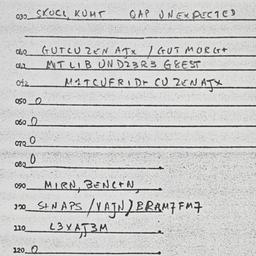 030 SKOCL, KUMT GAP UNEXPECTED
040 GUTCUZENATX / GUT MORG+
041 MIT LIB UND23R3 GBEST
042 M1TCUFRID+ CUZENATX
050 0
060 0
070 0
080 0
090 MIRN, BENC+N,
100 S+NAPS / VAJN / BRAM7FM7
110 L3XAJ3M
120 0